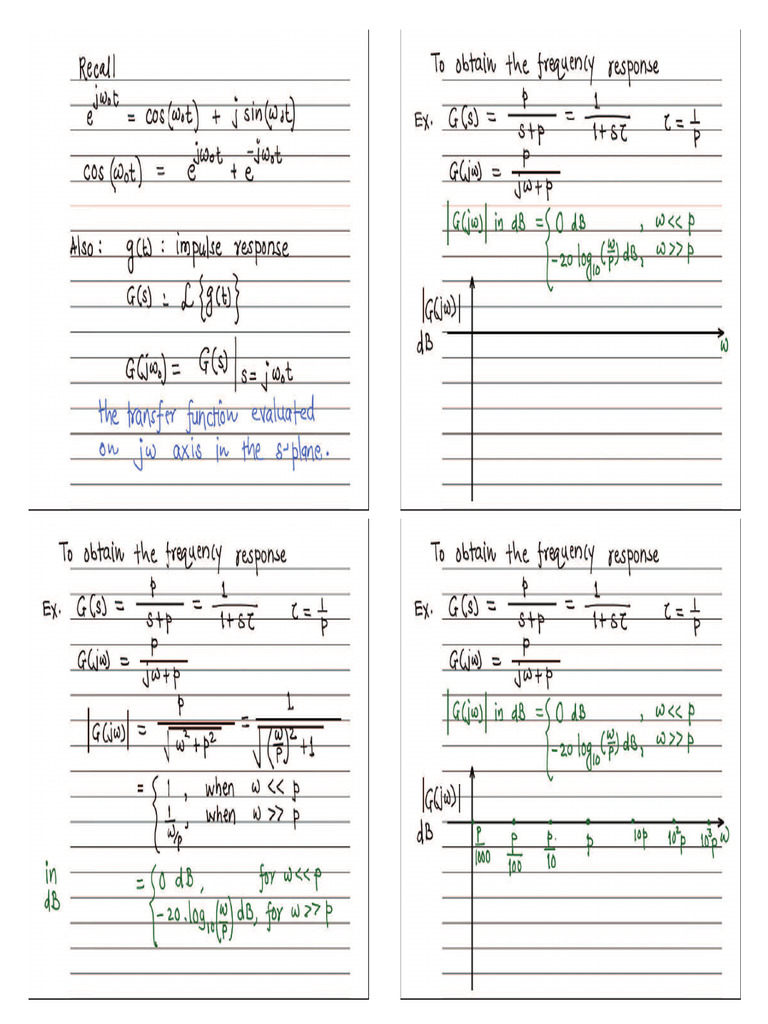 Recall
e^{jω₀t} = cos(ω₀t) + j sin(ω₀t)
cos(ω₀t) = e^{jω₀t} + e^{-jω₀t}
Also: g(t): impulse response
G(s) = ℒ{g(t)}
G(jω₀) = G(s)|_{s=jω₀t}
the transfer function evaluated
on jω axis in the s-plane.
To obtain the frequency response
Ex. G(s) = p/(s+p) = 1/(1+sτ) τ = 1/p
G(jω) = p/(jω+p)
|G(jω)| in dB = { 0 dB , ω<<p
-20 log₁₀(ω/p) dB, ω>>p
|G(jω)|
dB
ω
To obtain the frequency response
Ex. G(s) = p/(s+p) = 1/(1+sτ) τ = 1/p
G(jω) = p/(jω+p)
|G(jω)| = p/√(ω²+p²) = 1/√((ω/p)²+1)
= { 1 , when ω << p
1/(ω/p) , when ω >> p
in dB = { 0 dB, for ω<<p
-20.log₁₀(ω/p) dB, for ω>>p
To obtain the frequency response
Ex. G(s) = p/(s+p) = 1/(1+sτ) τ = 1/p
G(jω) = p/(jω+p)
|G(jω)| in dB = { 0 dB , ω<<p
-20 log₁₀(ω/p) dB, ω>>p
|G(jω)|
dB
p/1000 p/100 p/10 p 10p 10²p 10³p ω